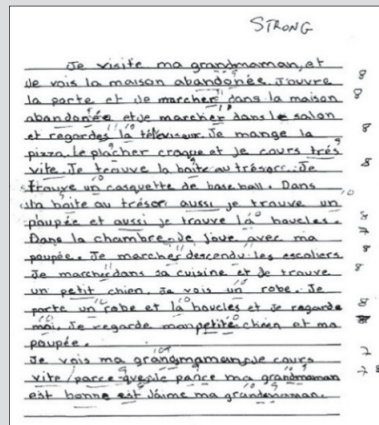 STRONG
Je visite ma grandmaman, et
Je vois la maison abandonée. J'ouvre 8
la porte et Je marcher dans la maison 8
abandonée et Je marcher dans le salon
et regardes la téléviseur. Je mange la 8
pizza. Le plâcher craque et je cours trés
vite. Je trouve la boîte au trésors. Je 8
trouve un casquette de baseball. Dans
la boîte au trésor aussi je trouve un 10
poupée et aussi je trouve la boucles. 8
Dans la chambre Je joue avec ma 7
poupée. Je marcher descendu les escaliers. 8
Je marcher dans sa cuisine et Je trouve 8
un petit chien. Je vois un robe. Je
porte un robe et la boucles et Je regarde 8
moi. Je regarde mon petite chien et ma 8
poupée.
Je vois ma grangmaman, Je cours 7
vite parce-que je pance ma grandmaman 7 8
est bonne est J'aime ma grandmaman.